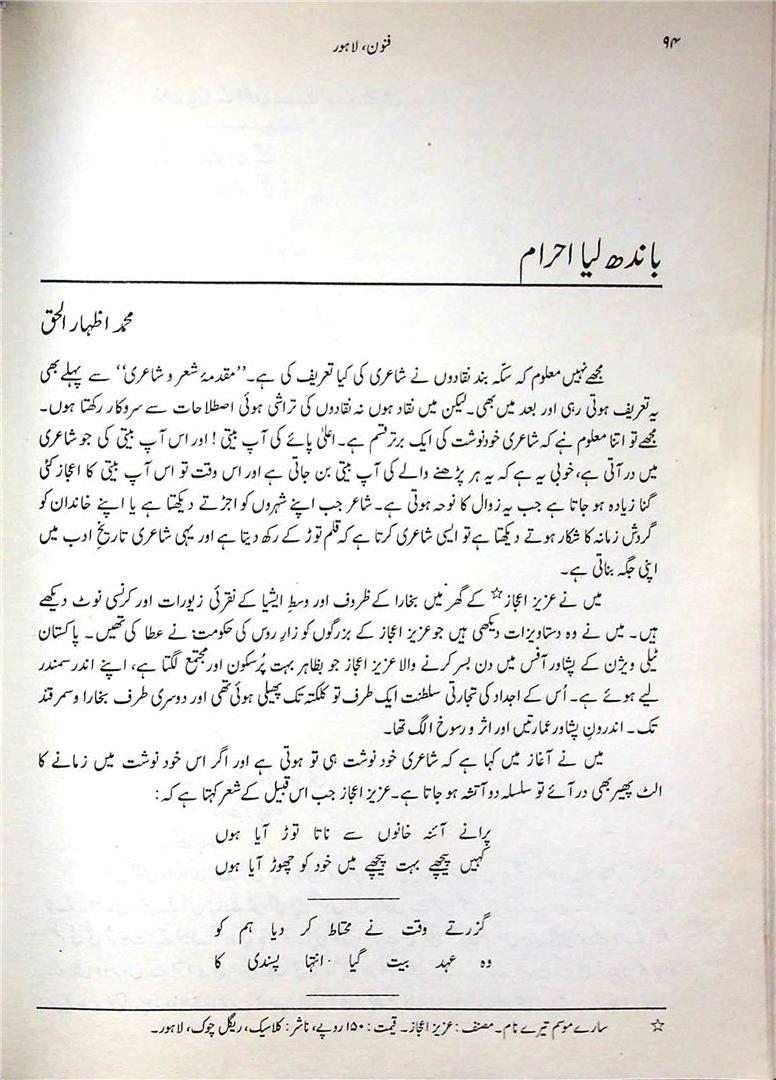 ۹۴
فنون، لاہور
باندھ لیا احرام
محمد اظہار الحق
مجھے نہیں معلوم کہ سکّہ بند نقادوں نے شاعری کی کیا تعریف کی ہے۔ ”مقدمۂ شعر و شاعری“ سے پہلے بھی
یہ تعریف ہوتی رہی اور بعد میں بھی۔ لیکن میں نقاد ہوں نہ نقادوں کی تراشی ہوئی اصطلاحات سے سروکار رکھتا ہوں۔
مجھے تو اتنا معلوم ہے کہ شاعری خودنوشت کی ایک برتر قسم ہے۔ اعلیٰ پائے کی آپ بیتی! اور اس آپ بیتی کی جو شاعری
میں در آتی ہے، خوبی یہ ہے کہ یہ ہر پڑھنے والے کی آپ بیتی بن جاتی ہے اور اس وقت تو اس آپ بیتی کا اعجاز کئی
گنا زیادہ ہو جاتا ہے جب یہ زوال کا نوحہ ہوتی ہے۔ شاعر جب اپنے شہروں کو اجڑتے دیکھتا ہے یا اپنے خاندان کو
گردشِ زمانہ کا شکار ہوتے دیکھتا ہے تو ایسی شاعری کرتا ہے کہ قلم توڑ کے رکھ دیتا ہے اور یہی شاعری تاریخِ ادب میں
اپنی جگہ بناتی ہے۔
میں نے عزیز اعجاز☆ کے گھر میں بخارا کے ظروف اور وسطِ ایشیا کے نقرئی زیورات اور کرنسی نوٹ دیکھے
ہیں۔ میں نے وہ دستاویزات دیکھی ہیں جو عزیز اعجاز کے بزرگوں کو زارِ روس کی حکومت نے عطا کی تھیں۔ پاکستان
ٹیلی ویژن کے پشاور آفس میں دن بسر کرنے والا عزیز اعجاز جو بظاہر بہت پُرسکون اور مجتمع لگتا ہے، اپنے اندر سمندر
لیے ہوئے ہے۔ اُس کے اجداد کی تجارتی سلطنت ایک طرف تو کلکتہ تک پھیلی ہوئی تھی اور دوسری طرف بخارا و سمرقند
تک۔ اندرونِ پشاور عمارتیں اور اثر و رسوخ الگ تھا۔
میں نے آغاز میں کہا ہے کہ شاعری خودنوشت ہی تو ہوتی ہے اور اگر اس خودنوشت میں زمانے کا
الٹ پھیر بھی در آئے تو سلسلہ دو آتشہ ہو جاتا ہے۔ عزیز اعجاز جب اس قبیل کے شعر کہتا ہے کہ:
پرانے آئنہ خانوں سے ناتا توڑ آیا ہوں
کہیں پیچھے بہت پیچھے میں خود کو چھوڑ آیا ہوں
گزرتے وقت نے محتاط کر دیا ہم کو
وہ عہد بیت گیا انتہا پسندی کا
☆ سارے موسم تیرے نام۔ مصنف: عزیز اعجاز۔ قیمت: ۱۵۰ روپے، ناشر: کلاسیک، ریگل چوک، لاہور۔